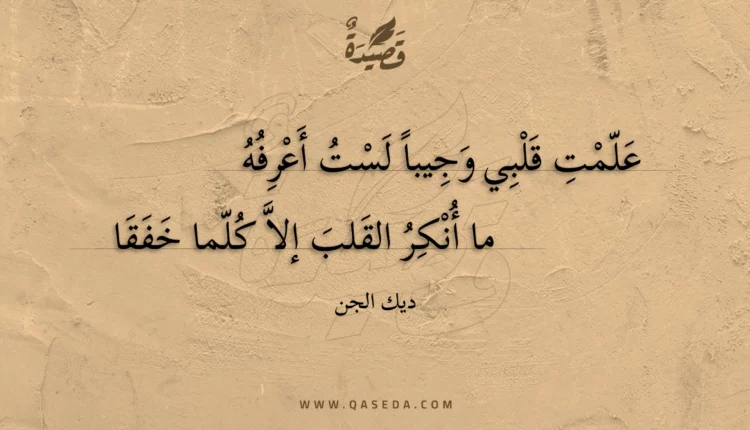 قَصِيدَةٌ
عَلّمْتِ قَلْبِي وَجِيباً لَسْتُ أَعْرِفُهُ
ما أُنْكِرُ القَلبَ إلاَّ كُلّما خَفَقَا
ديك الجن
WWW.QASEDA.COM